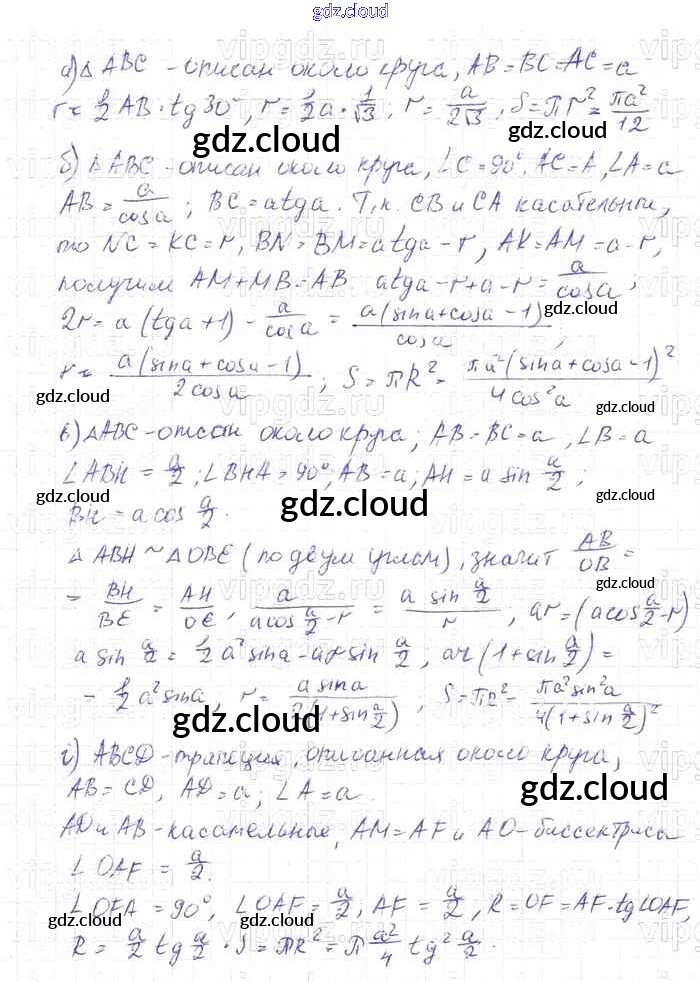 gdz.cloud
а) △ ABC - описан около круга, AB = BC = AC = a
r = 1/2 AB · tg 30°, r = 1/2 a · 1/√3, r = a/2√3, S = πr² = πa²/12
б) △ABC - описан около круга, ∠C = 90°. AC = A, ∠A = a
AB = a/cos a; BC = a tg a. Т.к. CB и CA касательные,
то NC = KC = r, BN = BM = a tg a - r, AK = AM = a - r,
получим AM + MB = AB a tg a - r + a - r = a/cos a;
2r = a (tg a + 1) - a/cos a = a(sin a + cos a - 1)/cos a;
r = a(sin a + cos a - 1)/2 cos a; S = πR² = πa²(sin a + cos a - 1)²/4 cos² a
в) △ABC - описан около круга; AB = BC = a, ∠B = a
∠ABH = a/2; ∠BHA = 90°; AB = a; AH = a sin a/2;
BH = a cos a/2.
△ ABH ~ △ OBE (по двум углам), значит AB/OB =
= BH/BE = AH/OE, a/a cos a/2 - r = a sin a/2 / r; ar = (a cos a/2 - r)
a sin a/2 = 1/2 a² sin a - ar sin a/2; ar (1 + sin a/2) =
= 1/2 a² sin a, r = a sin a/2(1 + sin a/2), S = πR² = πa² sin² a/4(1 + sin a/2)²
г) ABCD - трапеция, описанная около круга,
AB = CD, AD = a; ∠A = a.
AD и AB - касательные, AM = AF и AO - биссектриса
∠OAF = a/2.
∠OFA = 90°, ∠OAF = a/2, AF = a/2, R = OF = AF · tg∠OAF,
R = a/2 tg a/2 · S = πR² = π a²/4 tg² a/2.